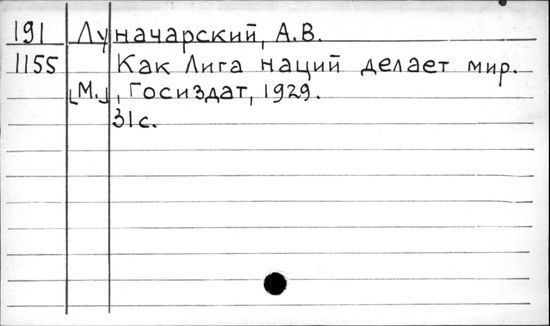 191 Луначарский, А.В.
1155 Как Лига наций делает мир.
[М.], Госиздат, 1929.
31с.